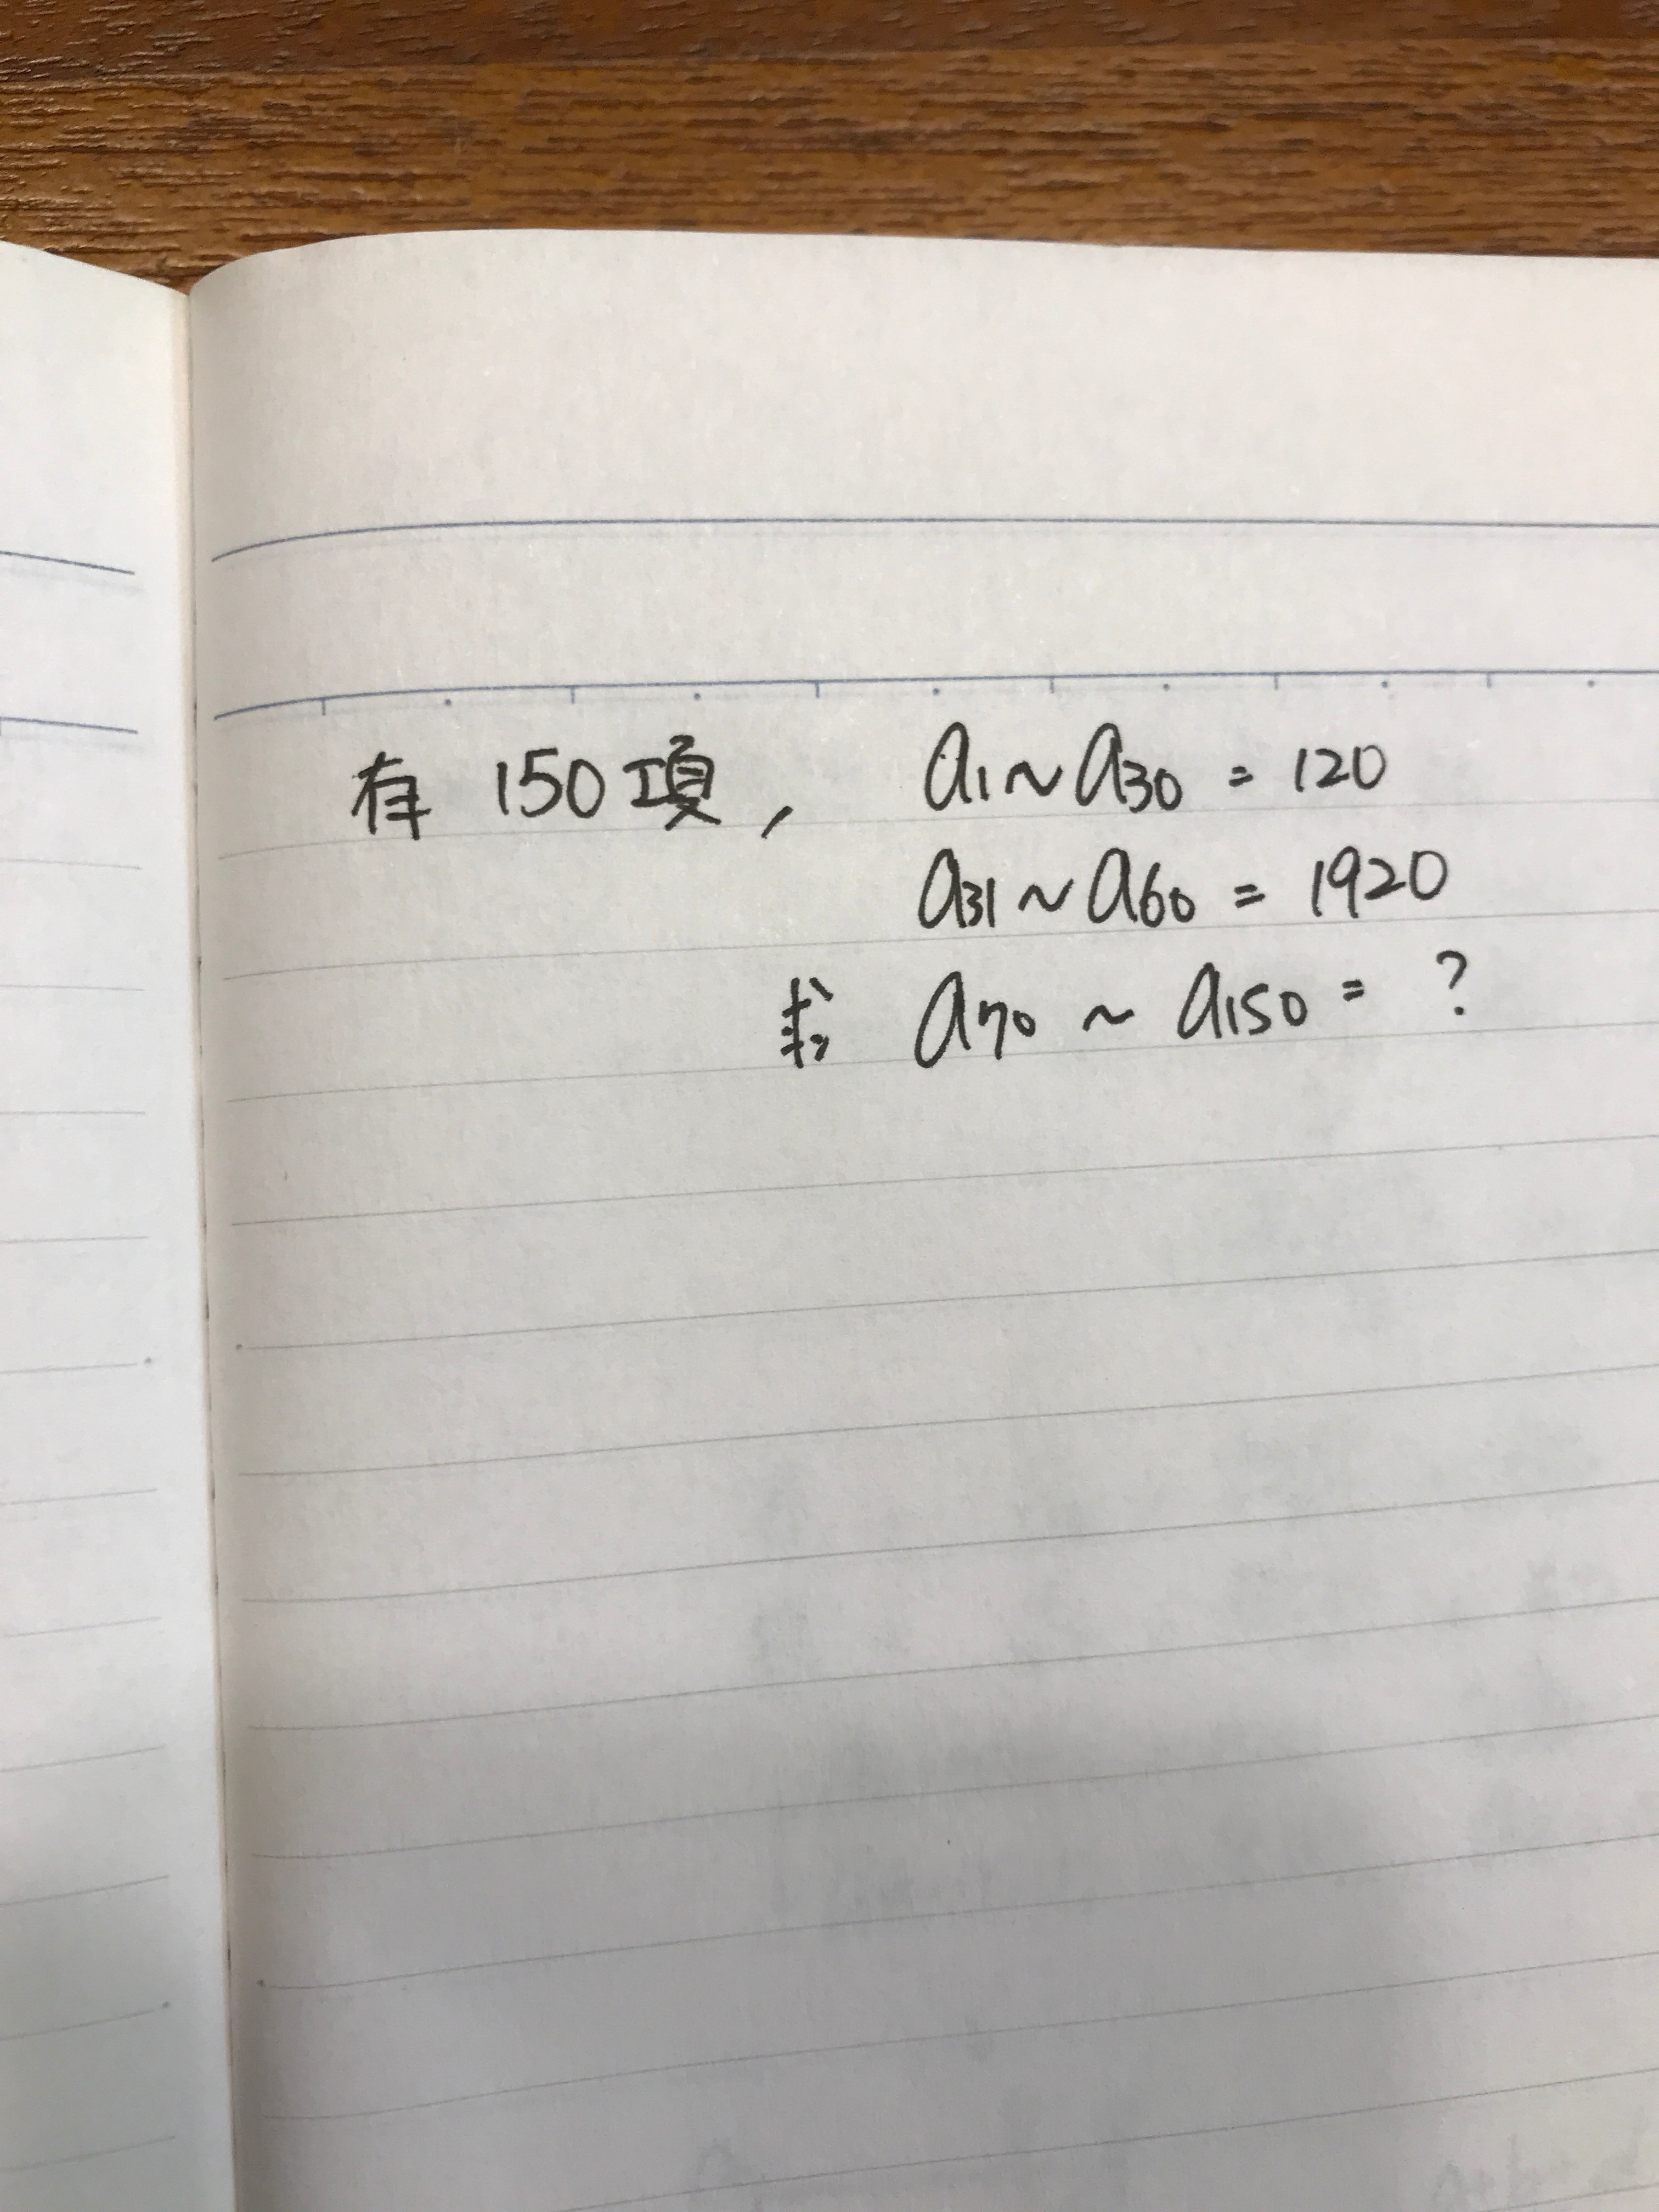 有 150項, a1~a30 = 120
a31~a60 = 1920
求 a70 ~ a150 = ?